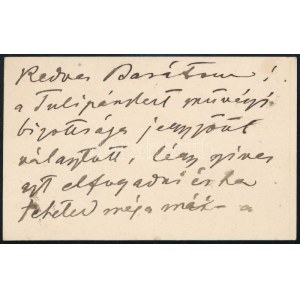 Kedves Barátom!
a Tulipánkert művészi
bizottsága jegyzőül
választott, légy szives
ezt elfogadni és ha
teheted még a má - a